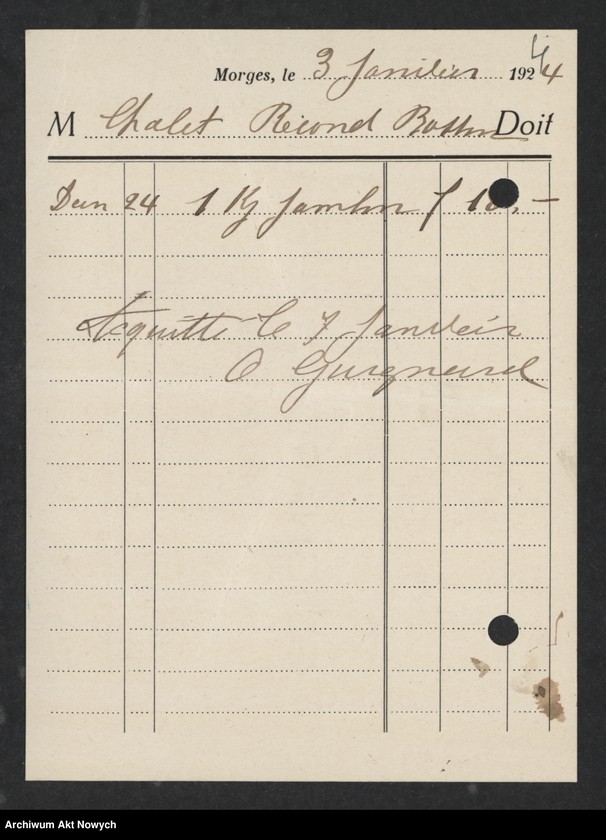 Morges, le 3 Janvier 1924
M Chalet Riond Bosson Doit
Dec 24 1 Kg Jambon f 10.—
Acquitté le 7 Janvier
O Guignard
Archiwum Akt Nowych